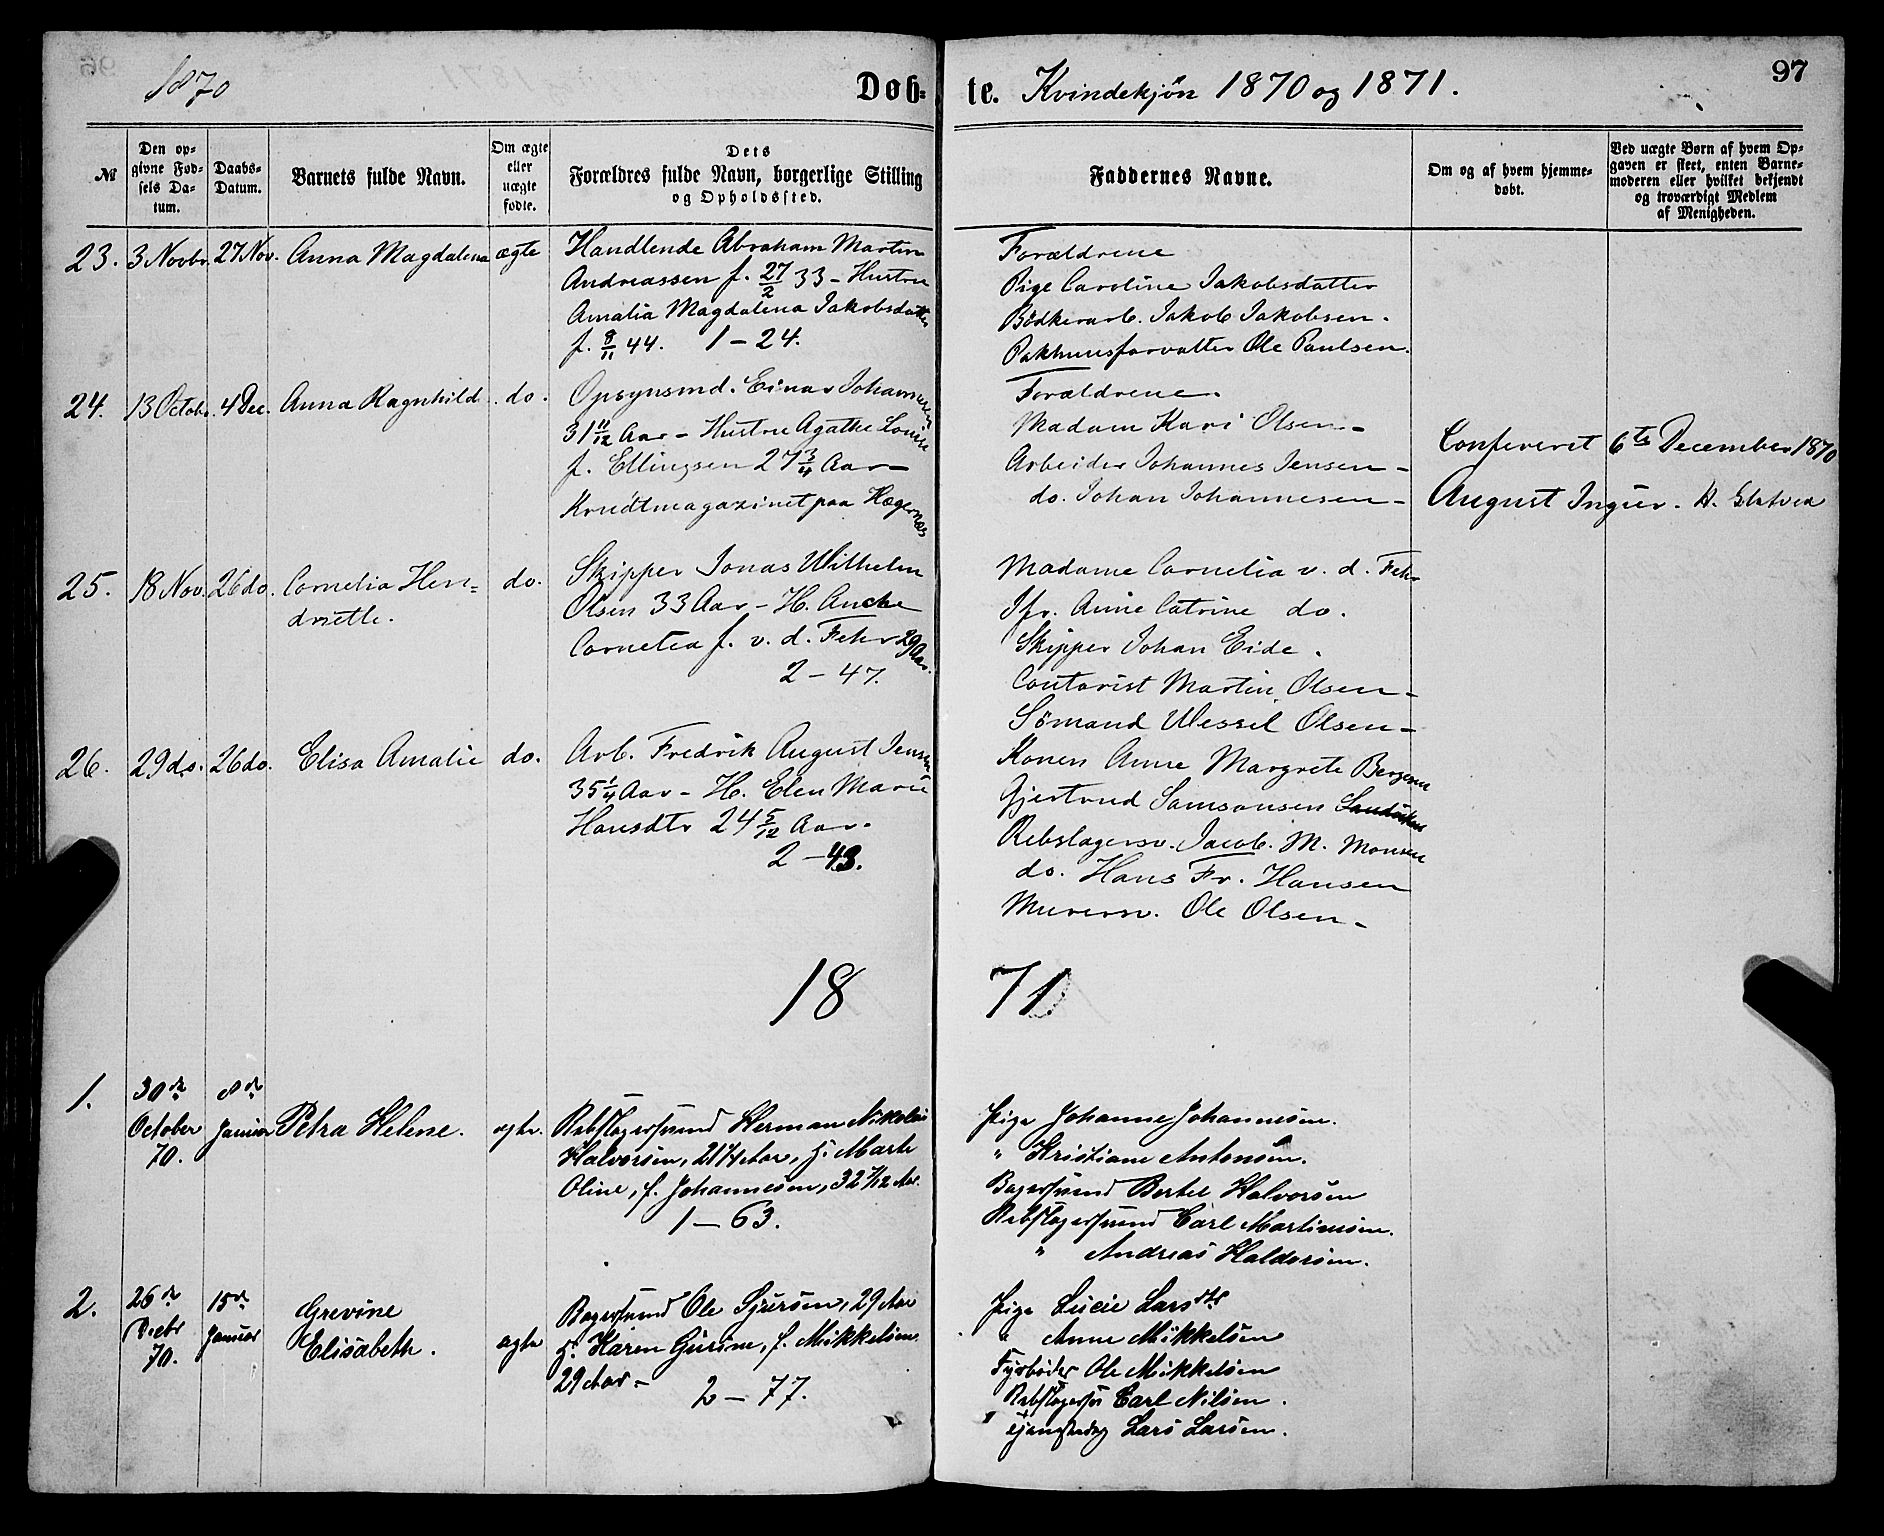 1870
Døbte. Kvindekjøn 1870 og 1871.
97
№
Den opgivne Fødsels Datum.
Daabs-Datum.
Barnets fulde Navn.
Om ægte eller uægte fødte.
Dets Forældres fulde Navn, borgerlige Stilling og Opholdssted.
Faddernes Navne.
Om og af hvem hjemmedøbt.
Ved uægte Børn af hvem Opgaven er skeet, enten Barnemoderen eller hvilket bekjendt og troværdigt Medlem af Menigheden.
23. 3 Novbr. 27 Nov. Anna Magdalena ægte
Handlende Abraham Martin
Andreassen f. 27/2 33 – Hustru
Amalia Magdalena Jakobsdatter
f. 8/11 44. 1 – 24.
Forældrene
Pige Caroline Jakobsdatter
Bødkerarb. Jakob Jakobsen.
Pakhuusforvalter Ole Paulsen.
24. 13 Octobr. 4 Dec. Anna Ragnhild do.
Opsynsmd. Einar Johannesen
31 11/12 Aar – Hustru Agathe Louise
f. Ellingsen 27 3/4 Aar –
Krudtmagazinet paa Hægernæs
Forældrene.
Madam Kari Olsen –
Arbeider Johannes Jensen –
do. Johan Johannesen –
Confereret 6te December 1870
August Ingier. H.
25. 18 Nov. 26 do. Cornelia Hen=
driette. do.
Skipper Jonas Wilhelm
Olsen 33 Aar – H. Anche
Cornelia f. v. d. Fehr 29 Aar.
2 – 47.
Madame Cornelia v. d. Fehr
Jfr. Anne Catrine do.
Skipper Johan Eide.
Contorist Martin Olsen –
Sømand Wessel Olsen –
26. 29 do. 26 do. Elisa Amalie do.
Arb. Fredrik August Jensen
35 1/4 Aar – H. Elen Marie
Hansdtr 24 5/12 Aar.
2 – 43.
Konen Anne Margrete Bergesen
Gjertrud Samsonsen
Rebslagersv. Jacob. M. Monsen
do. Hans Fr. Hansen
Murersv. Ole Olsen –
1871
1. 30de October 70. 8de Januar Petra Helene. ægte.
Rebslagersvend Herman Nikolai
Halvorsen, 21 1/4 Aar, H. Marte
Oline, f. Johannesen, 32 7/12 Aar.
1 – 63.
Pige Johanne Johannesen.
" Kristiane Antonsen.
Bagersvend Bertel Halvorsen
Rebslagersvend Carl Martinsen.
" Andreas Haldorsen.
2. 26de Decbr 70. 15de Januar Grevine
Elisabeth. ægte
Bagersvend Ole Sjursen, 29 Aar
H. Karen Gurine, f. Mikkelsen
29 Aar – 2 – 77.
Pige Lucie Larsdtr
" Anne Mikkelsen
Fyrbøder Ole Mikkelsen
Rebslagersv Carl Nilsen.
Lars Larsen.